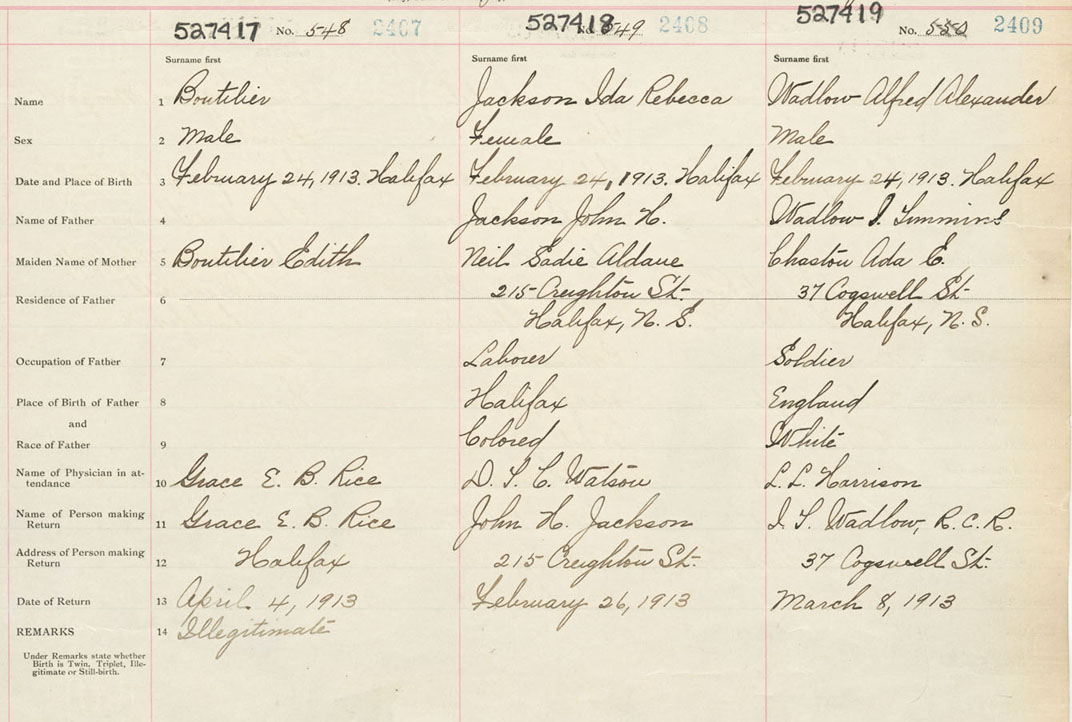 527417 No. 548 2407 527418 549 2408 527419 No. 550 2409
Surname first Surname first Surname first
Name 1 Boutilier Jackson Ida Rebecca Wadlow Alfred Alexander
Sex 2 Male Female Male
Date and Place of Birth 3 February 24, 1913. Halifax February 24, 1913. Halifax February 24, 1913. Halifax
Name of Father 4 Jackson John H. Wadlow I. Simmins
Maiden Name of Mother 5 Boutilier Edith Neil Sadie Aldane Chaston Ada E.
Residence of Father 6 215 Creighton St. 37 Cogswell St.
Halifax, N. S. Halifax, N. S.
Occupation of Father 7 Laborer Soldier
Place of Birth of Father 8 Halifax England
and
Race of Father 9 Colored White
Name of Physician in at-
tendance 10 Grace E. B. Rice D. S. C. Watson L. L. Harrison
Name of Person making
Return 11 Grace E. B. Rice John H. Jackson I. S. Wadlow, R. C. R.
Address of Person making
Return 12 Halifax 215 Creighton St. 37 Cogswell St.
Date of Return 13 April 4, 1913 February 26, 1913 March 8, 1913
REMARKS 14 Illegitimate
Under Remarks state whether
Birth is Twin, Triplet, Ille-
gitimate or Still-birth.